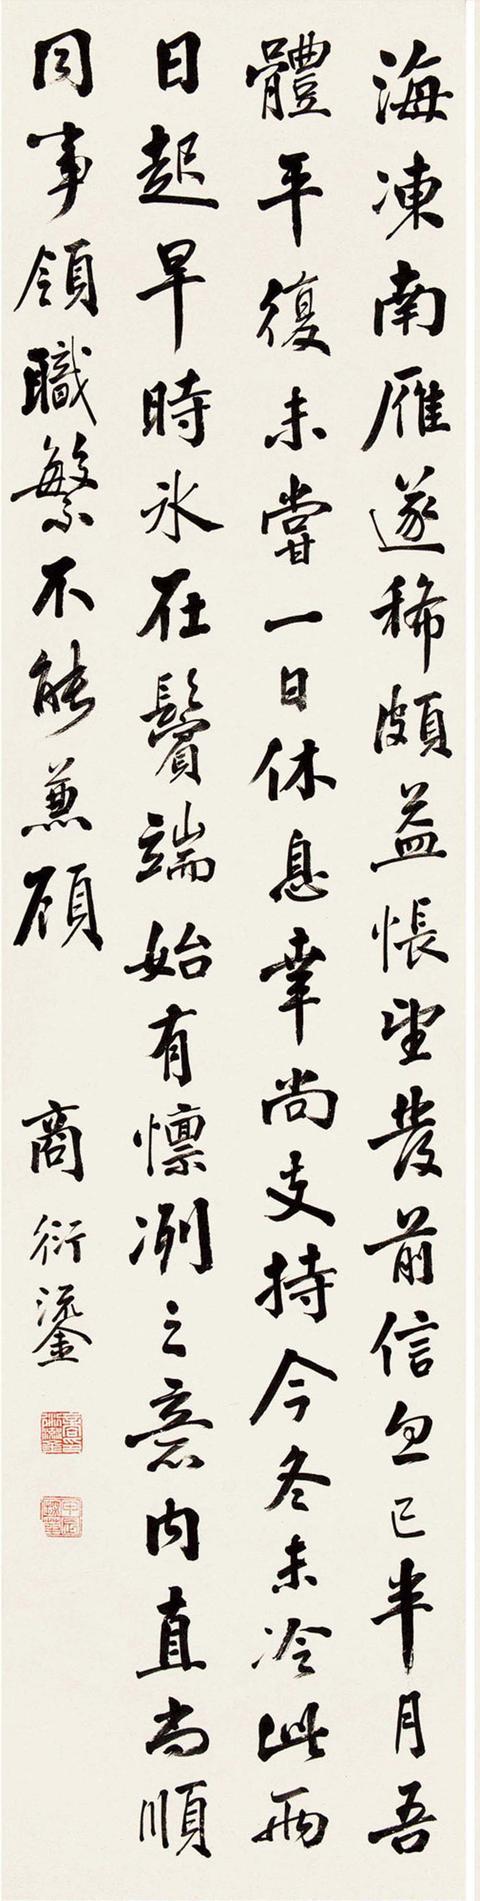 海凍南雁遂稀頗益悵望發前信忽已半月吾
體平復未嘗一日休息幸尚支持今冬未冷此兩
日起早時冰在鬢端始有懍冽之意內直尚順
同事領職繁不能兼顧
商衍鎏